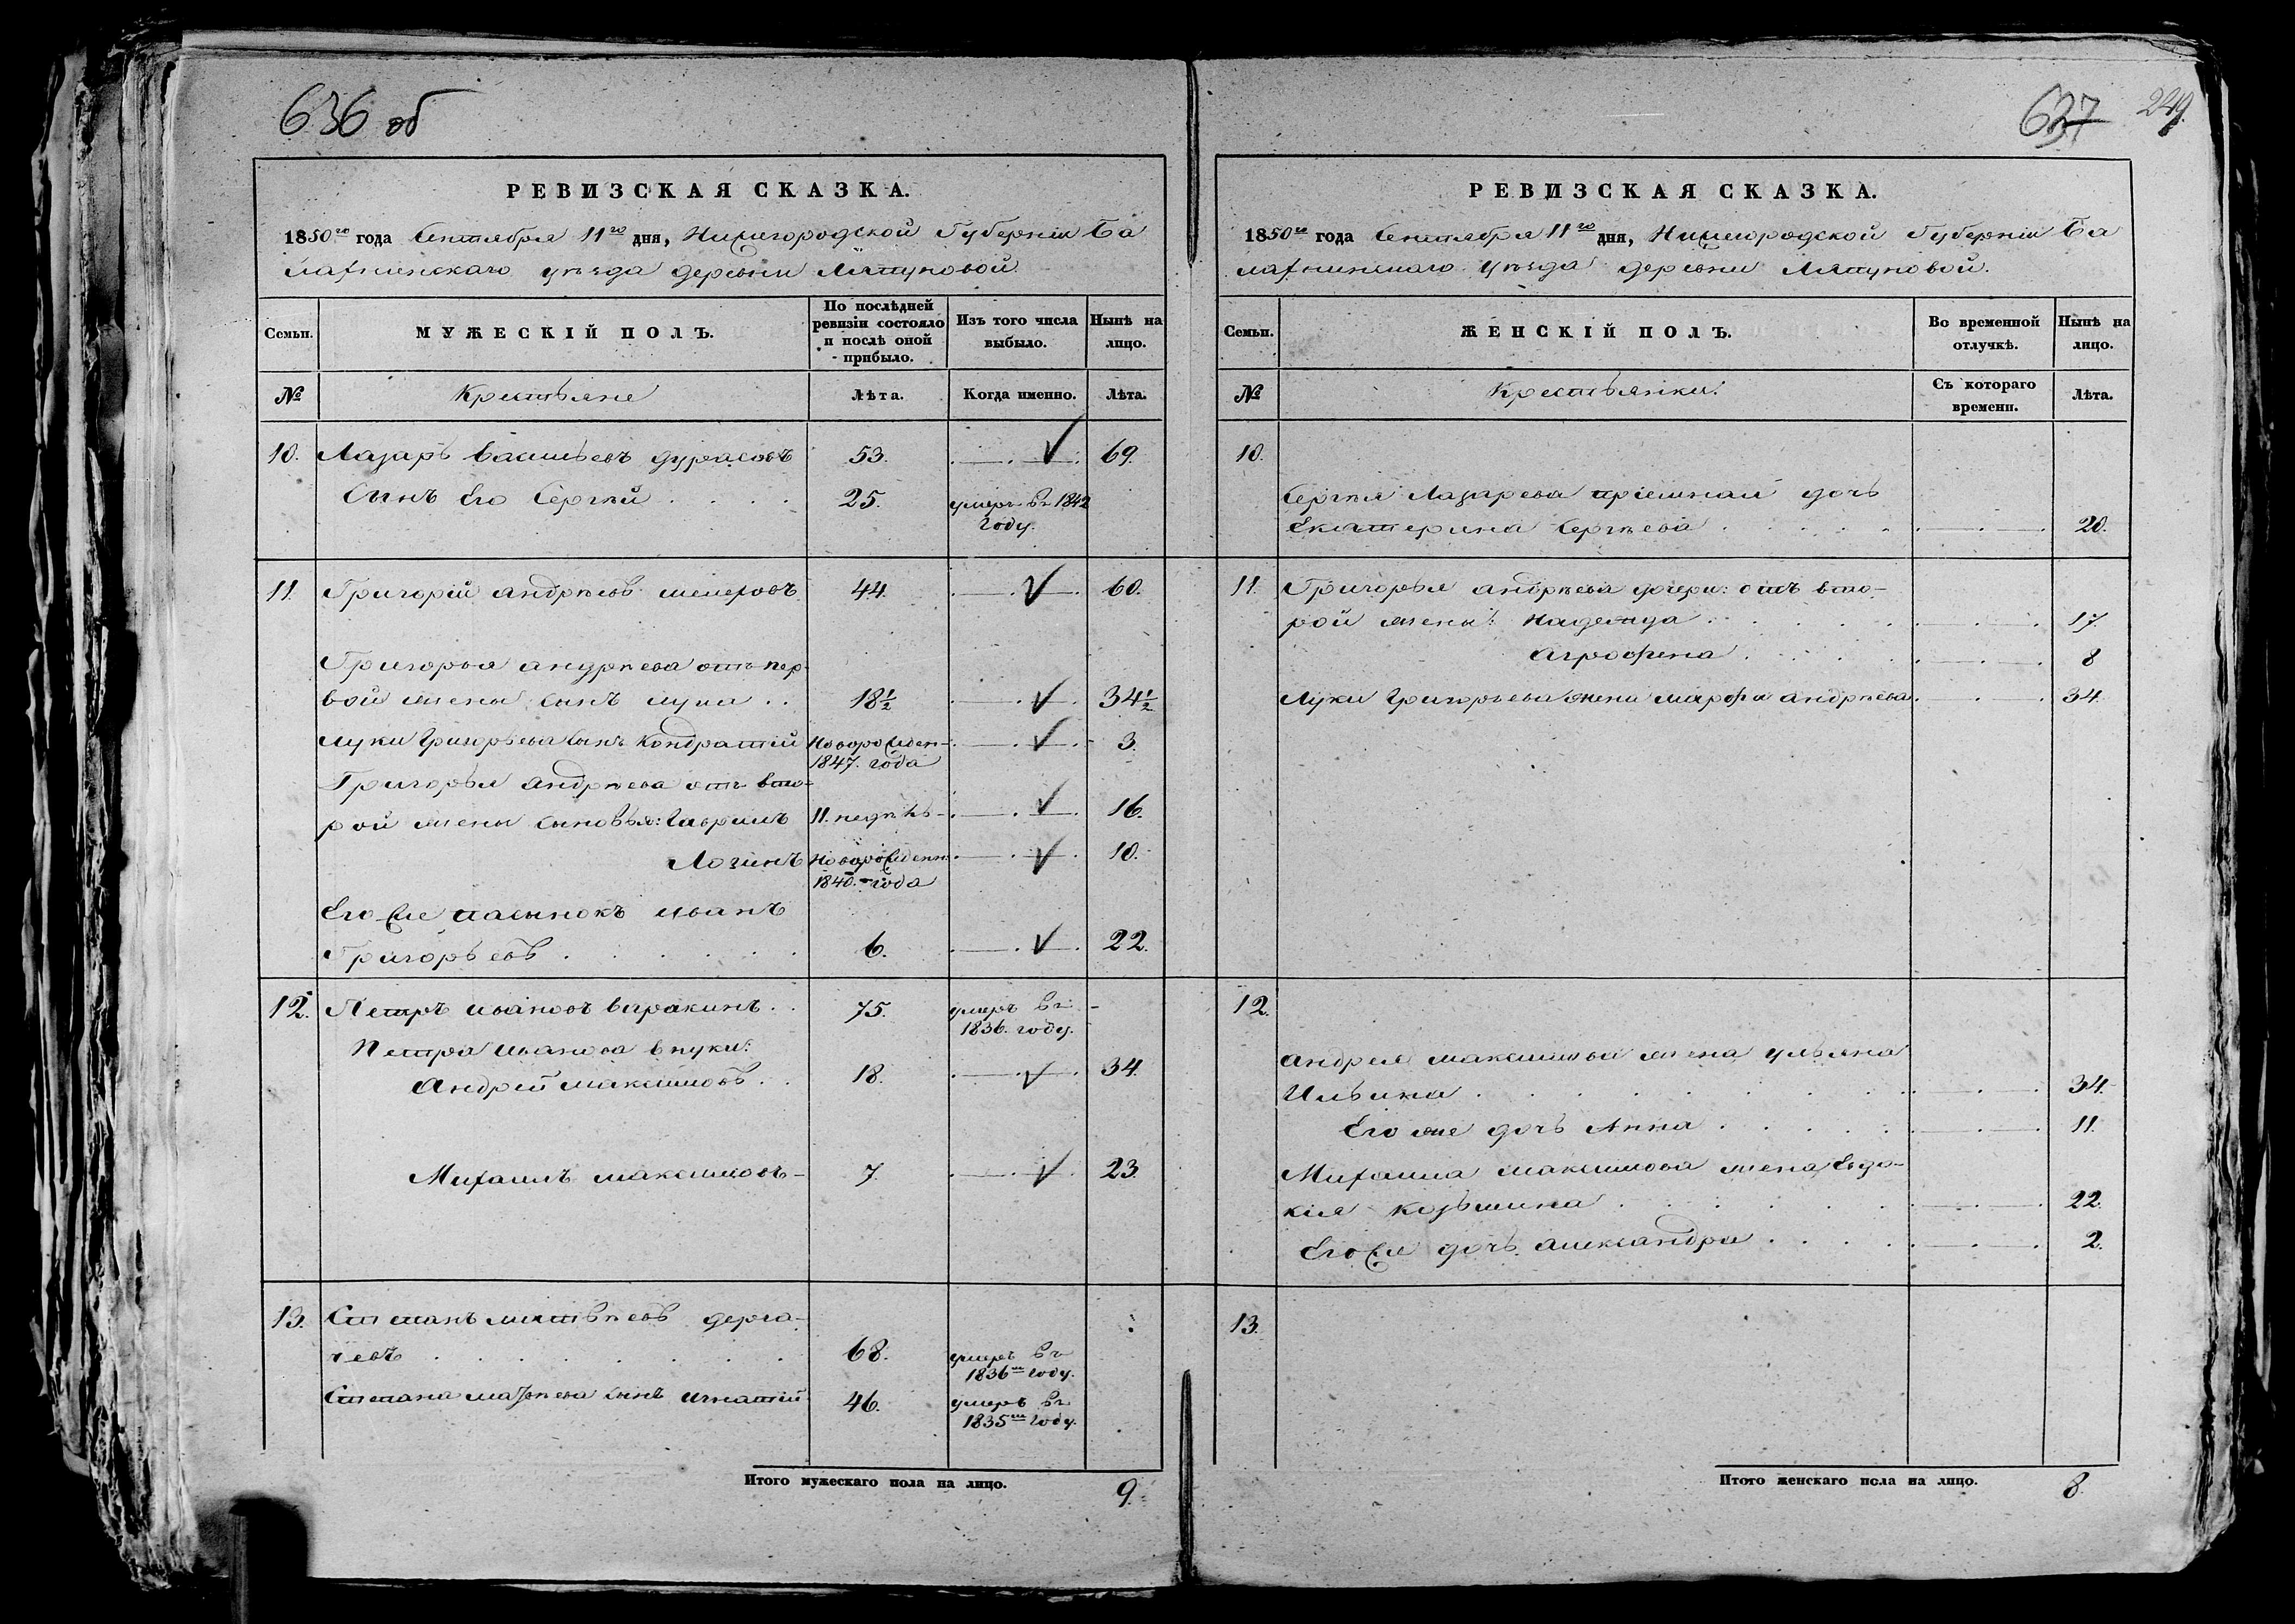 636 об
РЕВИЗСКАЯ СКАЗКА.
1850го года Сентября 11го дня, Нижегородской Губерніи Ба
лахнинскаго уѣзда деревни Ляпуновой.
Семьи.
МУЖЕСКІЙ ПОЛЪ.
По послѣдней ревизіи состояло и послѣ оной прибыло.
Изъ того числа выбыло.
Нынѣ на лицо.
№
Крестьяне
Лѣта.
Когда именно.
Лѣта.
10. Лазарь Васильевъ Дурасовъ 53. 69.
Сынъ Его Сергѣй 25. умеръ въ 1842
году.
11. Григорій Андрѣевъ 44. 60.
Григорья Андрѣева отъ пер-
вой жены сынъ Лука 18½ 34½
Луки Григорьева сынъ Кондратій Новорожден- 3.
1847. года
Григорья Андрѣева отъ вто-
рой жены сыновья: Гаврилъ 11. недѣль 16.
Логинъ Новорожденн: 10.
1840. года
Его же пасынокъ Иванъ
Григорьевъ 6. 22.
12. Петръ Ивановъ Варакинъ 75. умеръ въ -
1836. году.
Петра Иванова внуки:
Андрей Максимовъ 18. 34.
Михаилъ Максимовъ 7. 23.
13. Степанъ Матвѣевъ Дерга-
чевъ 68. умеръ въ
1836м году.
Степана Матвѣева сынъ Игнатій 46. умеръ въ
1835м году.
Итого мужескаго пола на лицо. 9.
637 249.
РЕВИЗСКАЯ СКАЗКА.
1850го года Сентября 11го дня, Нижегородской Губерніи Ба
лахнинскаго уѣзда деревни Ляпуновой.
Семьи.
ЖЕНСКІЙ ПОЛЪ.
Во временной отлучкѣ.
Нынѣ на лицо.
№
Крестьянки:
Съ котораго времени.
Лѣта.
10.
Сергѣя Лазарева пріемная дочь
Екатерина Сергѣева 20.
11. Григорья Андрѣева дочери: отъ вто-
рой жены: Надежда 17.
Агрофена 8
Луки Григорьева жена Марфа Андрѣева 34.
12.
Андрея Максимова жена Ульяна
Ильина 34.
Его же дочь Анна 11.
Михаила Максимова жена Евдо-
кія Козьмина 22.
Его же дочь Александра 2.
13.
Итого женскаго пола на лицо. 8.